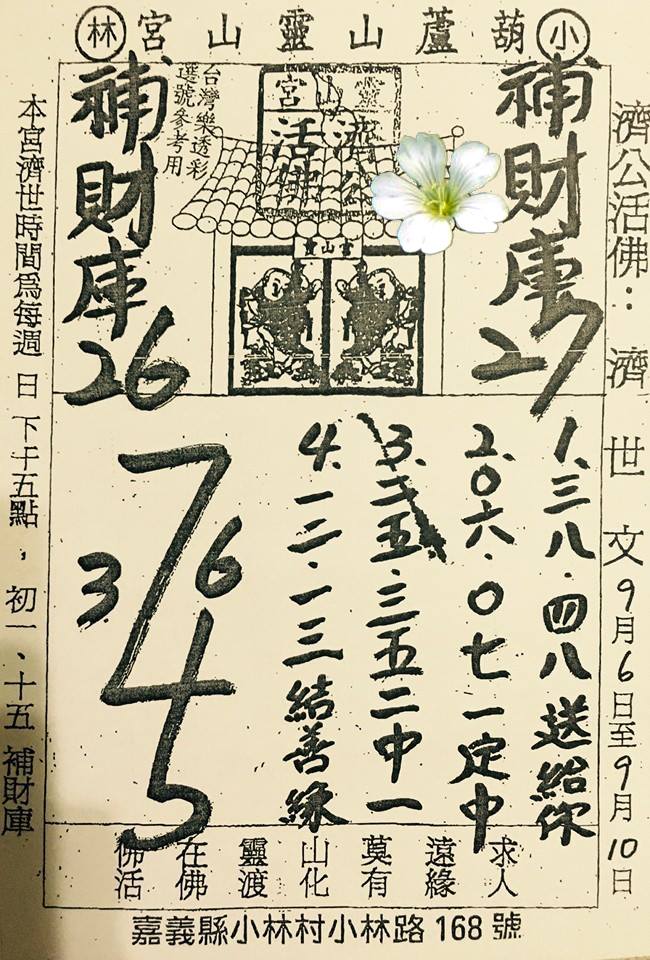 小 葫蘆山靈山宮 林
濟公活佛：濟世文 9月6日至9月10日
補財庫 27
靈山宮
濟公
活佛
靈山宮
台灣樂透彩
選號參考用
補財庫 26
1.三八.四八送給你
2.0六.0七一定中
3.二五.三五二中一
4.一二.一三結善緣
7
3 6
4
5
佛在靈山莫遠求
活佛渡化有緣人
本宮濟世時間爲每週日下午五點，初一、十五補財庫
嘉義縣小林村小林路168號